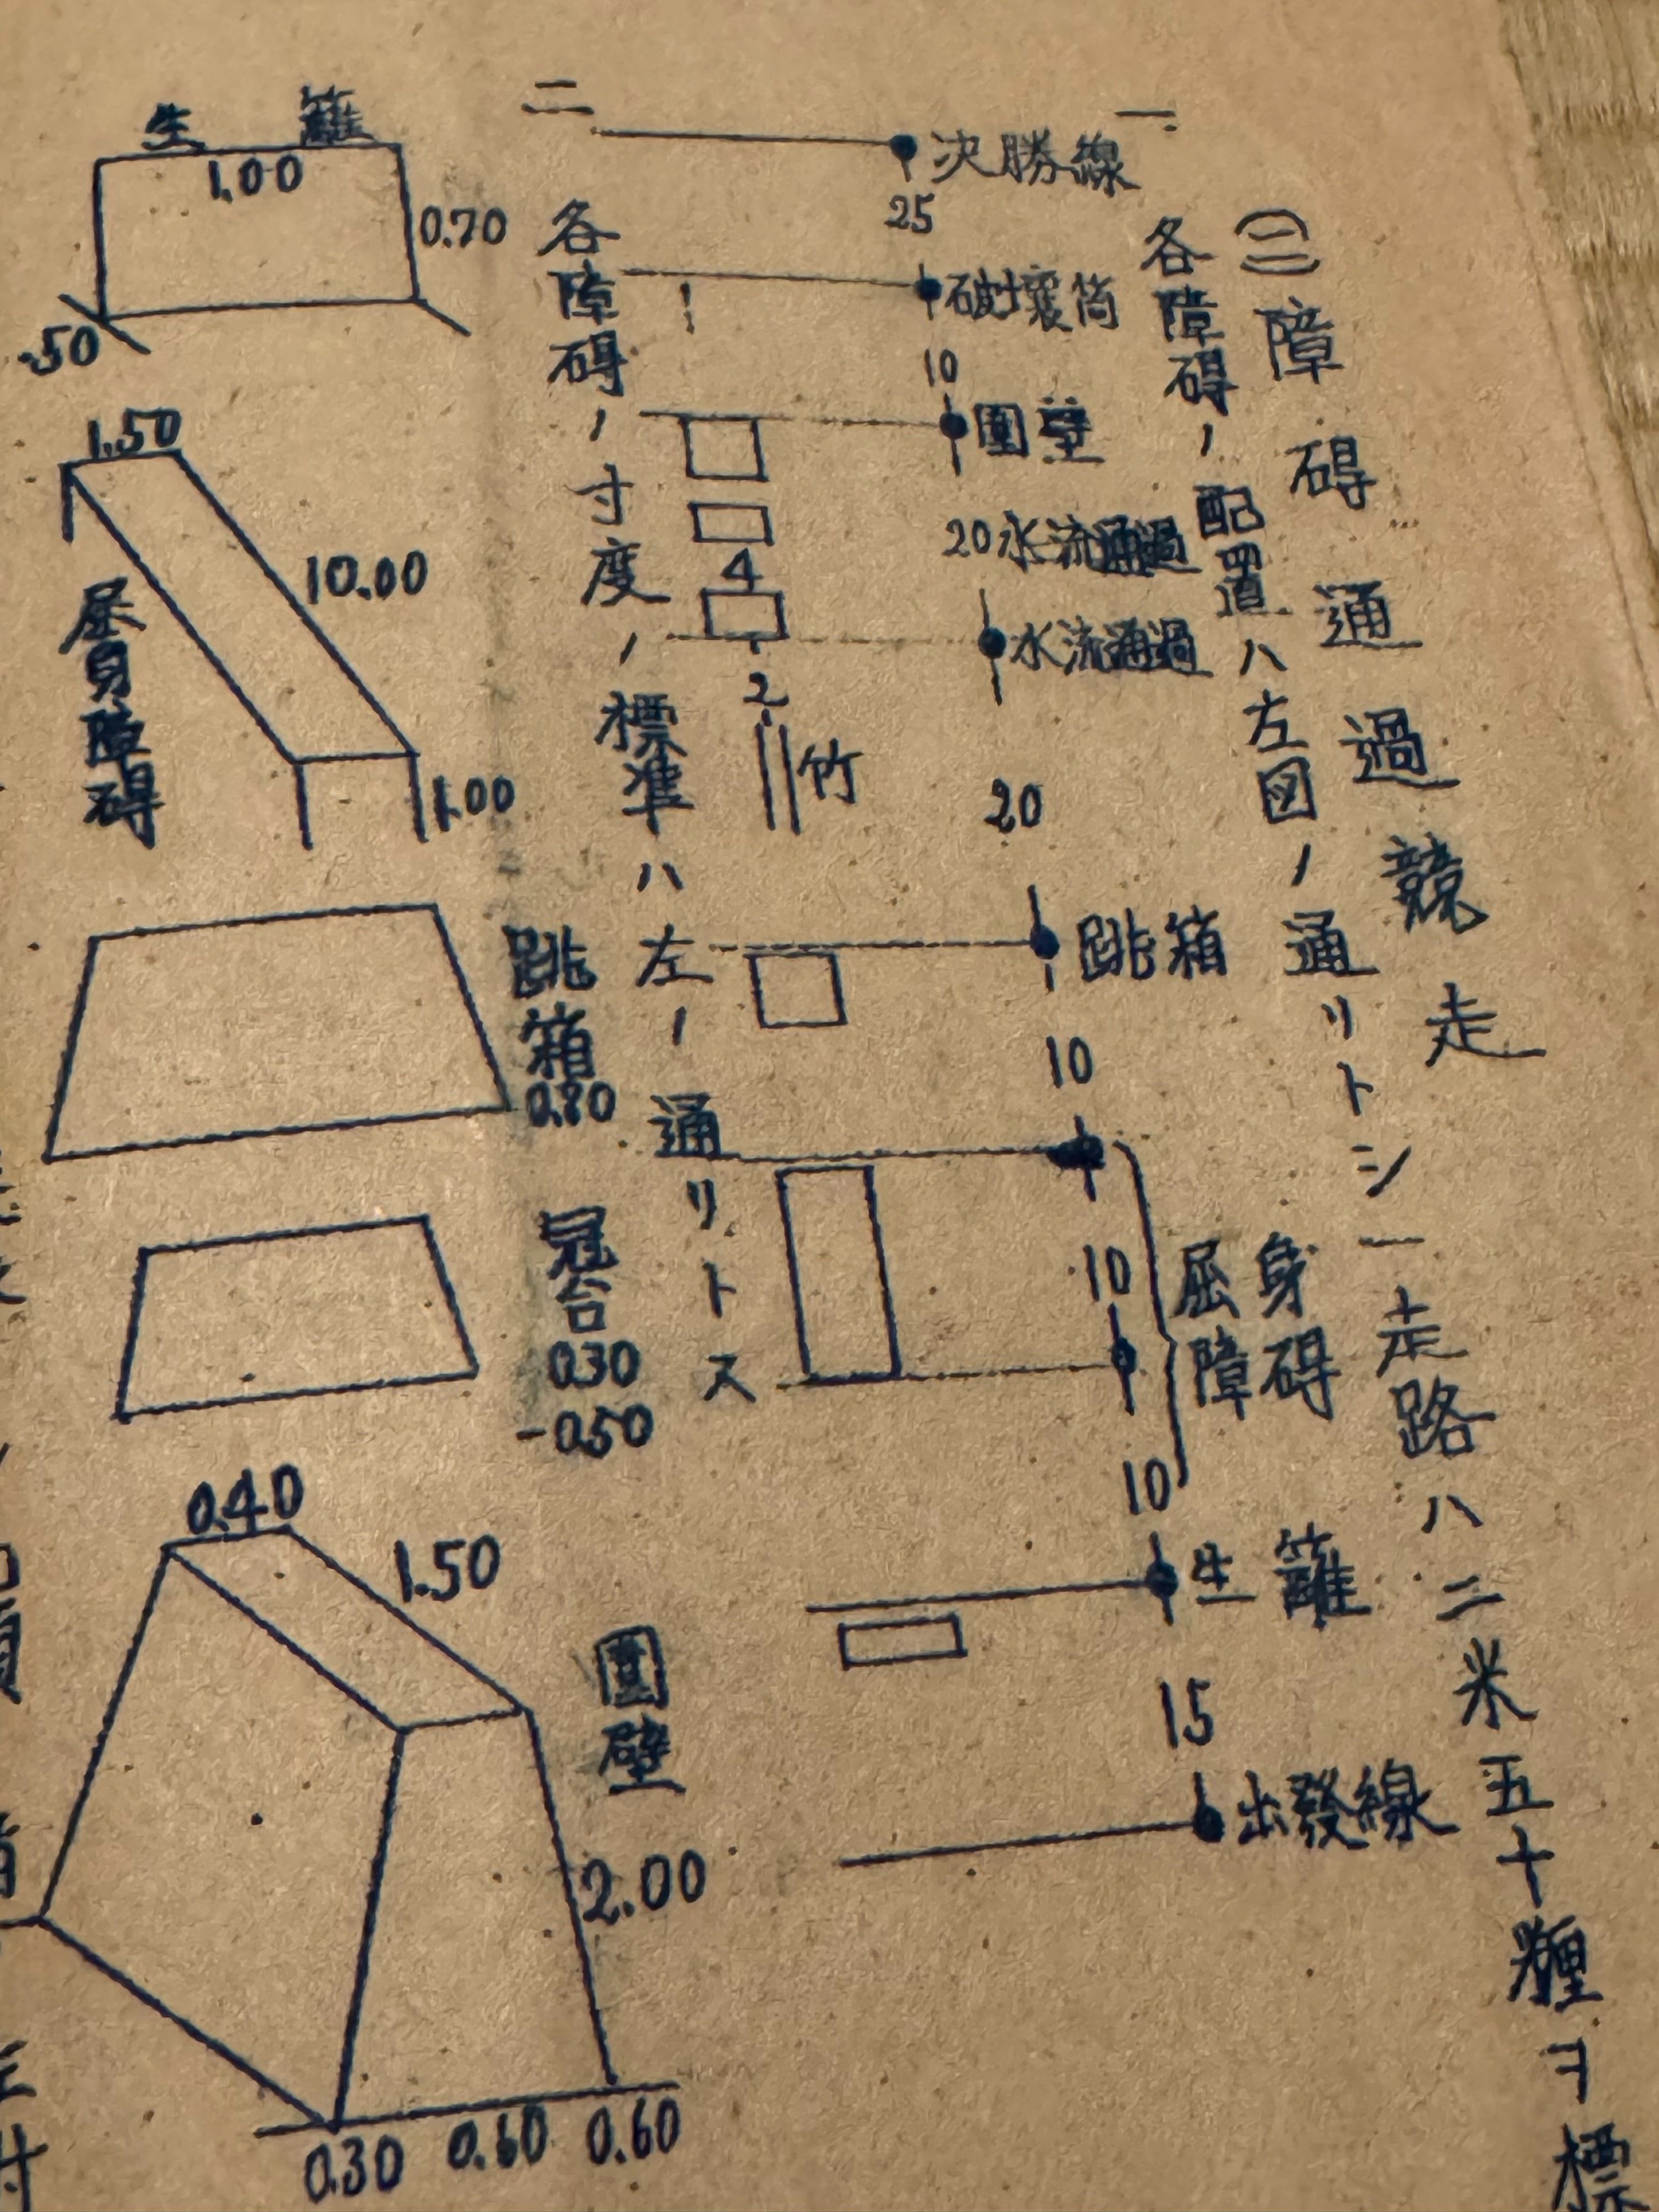 (三)障碍通過競走
一.
各障碍ノ配置ハ左図ノ通リトシ一走路ハ二米五十糎ヲ標
決勝線
25
破壊筒
10
圍壁
20 水流通過
水流通過
20
跳箱
10
10
屈身
障碍
10
生籬
15
出發線
4
2
竹
二
各障碍ノ寸度ノ標準ハ左ノ通リトス
生籬
1.00
0.70
.50
1.50
10.00
1.00
屈身障碍
跳箱
0.80
冠台
0.30
-0.50
0.40
1.50
圍壁
2.00
0.30 0.60 0.60